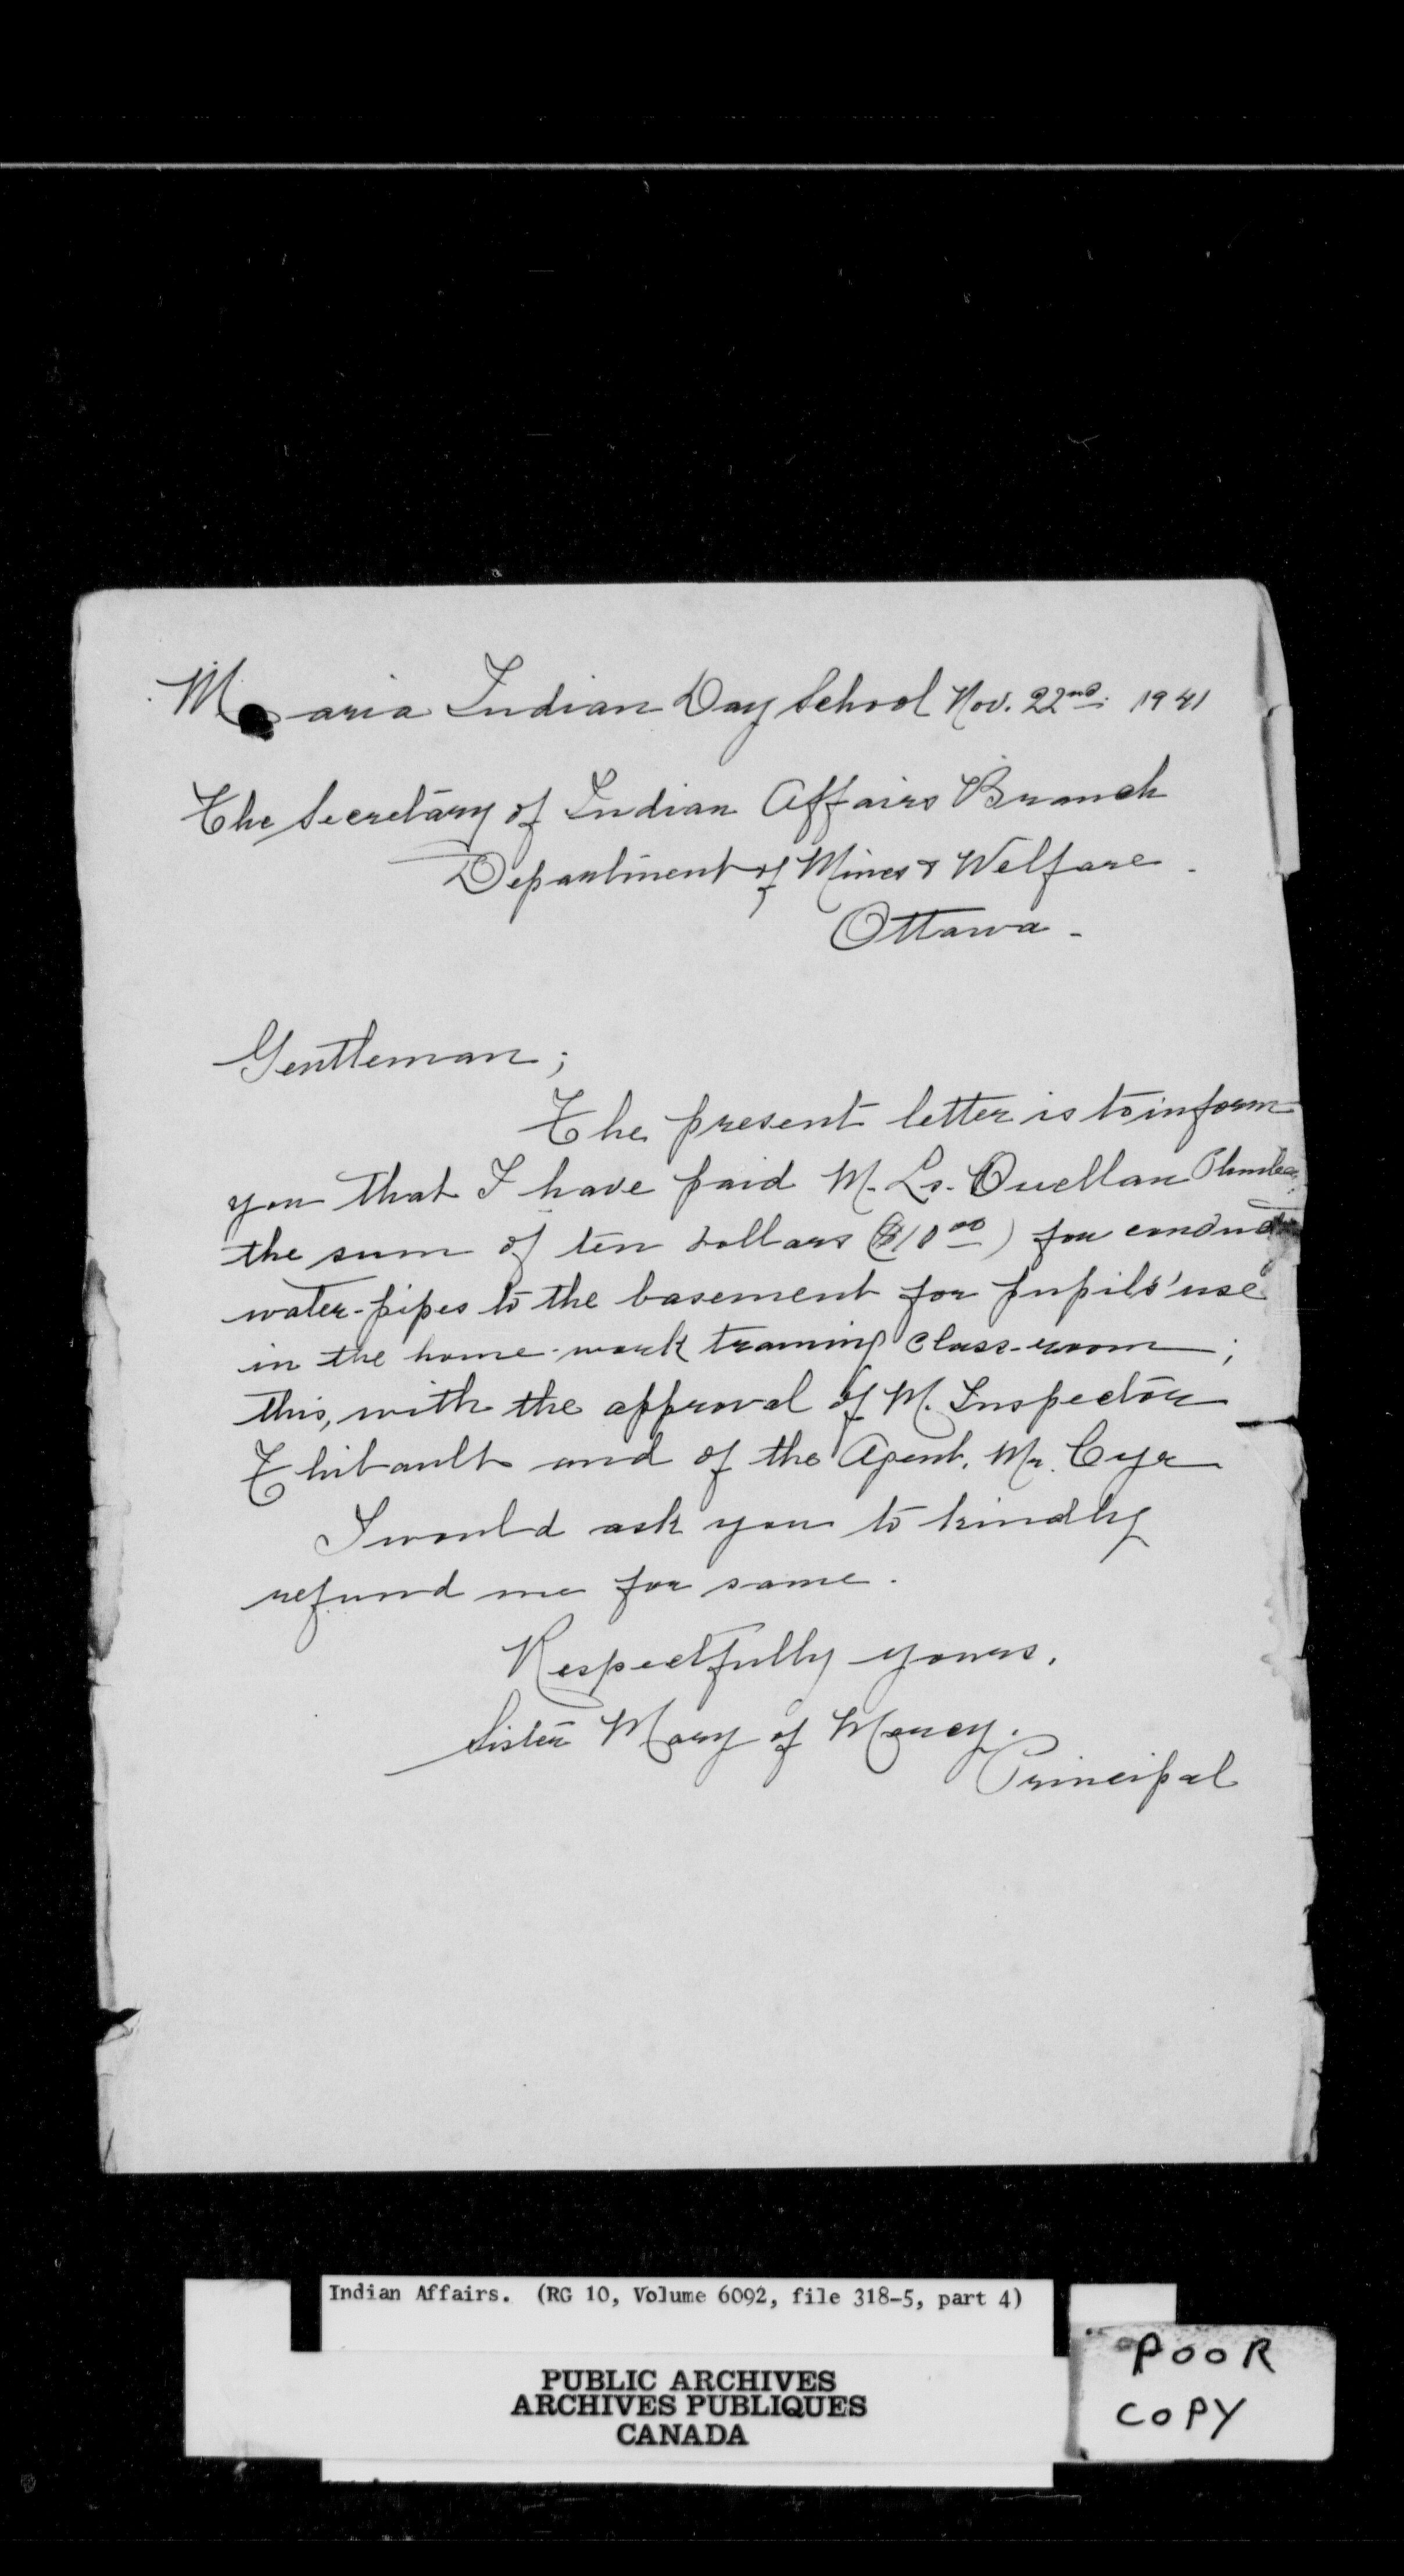 Maria Indian Day School Nov. 22nd. 1941
The Secretary of Indian Affairs Branch
Department of Mines & Welfare.
Ottawa -
Gentleman;
The present letter is to inform
you that I have paid M. Ls. Ouellan Plumber,
the sum of ten dollars ($10 00) for
water-pipes to the basement for pupils' use
in the home-work training class-room;
this, with the approval of M. Inspector
Thibault and of the Agent, Mr. Cyr
I would ask you to kindly
refund me for same.
Respectfully yours,
Sister Mary of Mercy.
Principal
Indian Affairs. (RG 10, Volume 6092, file 318-5, part 4)
PUBLIC ARCHIVES
ARCHIVES PUBLIQUES
CANADA
POOR
COPY